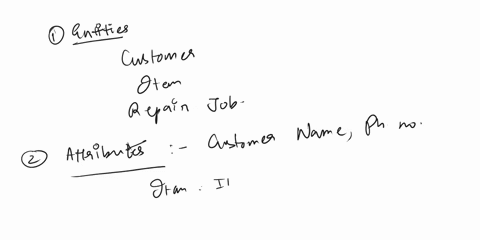 ① Entities
Customer
Item
Repair Job.
② Attributes :- Customer Name, Ph no.
Item : I